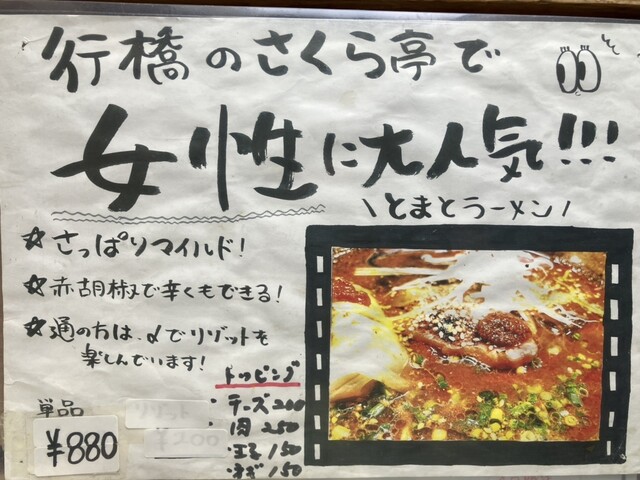 行橋のさくら亭で
女性に大人気!!!
\とまとラーメン/
☆さっぱりマイルド!
☆赤胡椒で辛くもできる!
☆通の方は、〆でリゾットを
楽しんでいます!
トッピング
・チーズ200
・肉 250
・玉子 150
・ネギ 150
単品
¥880
リゾット
¥200